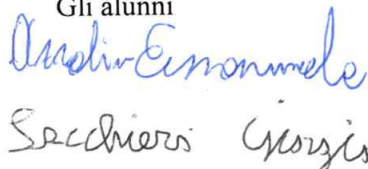 Gli alunni
Emanuele
Secchiero Giorgio